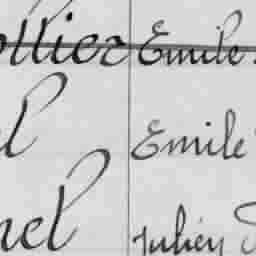 ollier Emile
l Emile
nel Julien